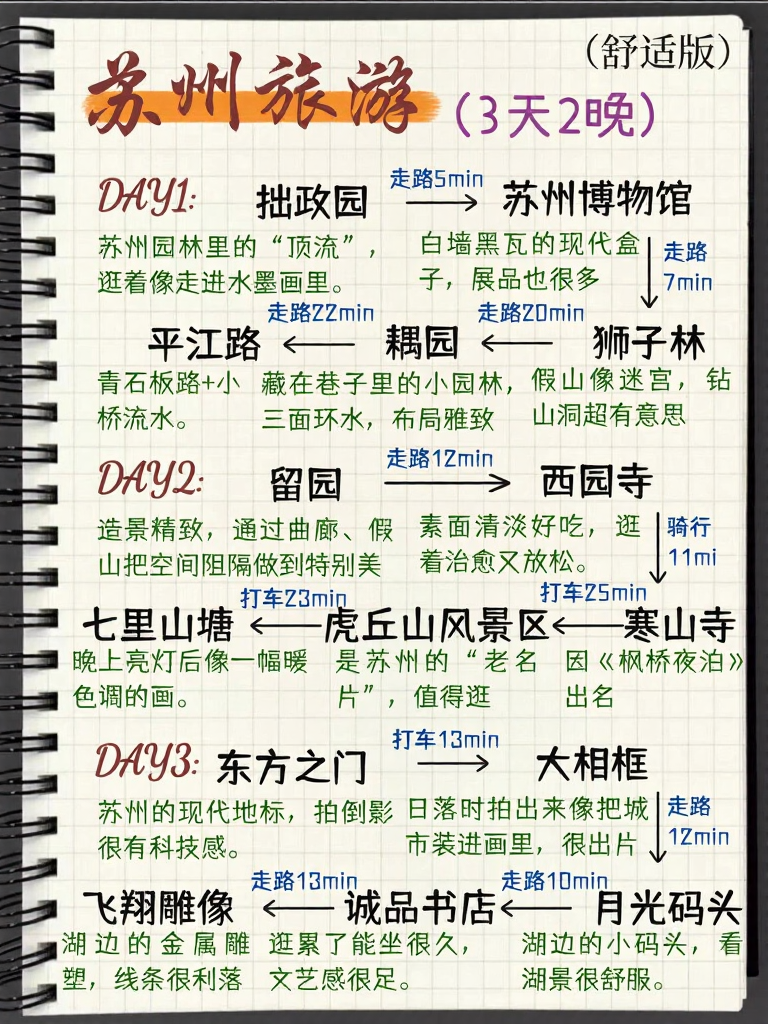 （舒适版）
苏州旅游
（3天2晚）
DAY1: 拙政园 走路5min 苏州博物馆
苏州园林里的“顶流”，
逛着像走进水墨画里。
白墙黑瓦的现代盒
子，展品也很多
走路
7min
狮子林
假山像迷宫，钻
山洞超有意思
走路20min
耦园
藏在巷子里的小园林，
三面环水，布局雅致
走路22min
平江路
青石板路+小
桥流水。
DAY2: 留园 走路12min 西园寺
造景精致，通过曲廊、假
山把空间阻隔做到特别美
素面清淡好吃，逛
着治愈又放松。
骑行
11mi
寒山寺
因《枫桥夜泊》
出名
打车25min
虎丘山风景区
是苏州的“老名
片”，值得逛
打车23min
七里山塘
晚上亮灯后像一幅暖
色调的画。
DAY3: 东方之门 打车13min 大相框
苏州的现代地标，拍倒影
很有科技感。
日落时拍出来像把城
市装进画里，很出片
走路
12min
月光码头
湖边的小码头，看
湖景很舒服。
走路10min
诚品书店
逛累了能坐很久，
文艺感很足。
走路13min
飞翔雕像
湖边的金属雕
塑，线条很利落